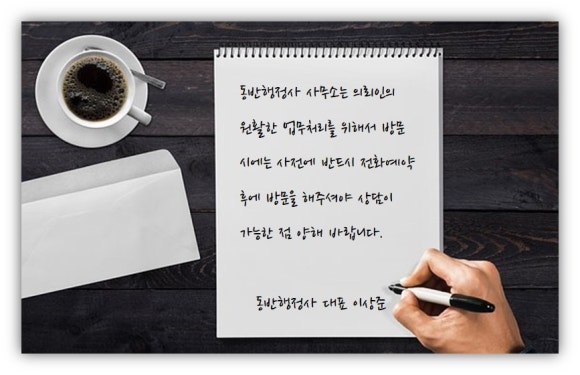 동반행정사 사무소는 의뢰인의
원활한 업무처리를 위해서 방문
시에는 사전에 반드시 전화예약
후에 방문을 해주셔야 상담이
가능한 점 양해 바랍니다.
동반행정사 대표 이상준